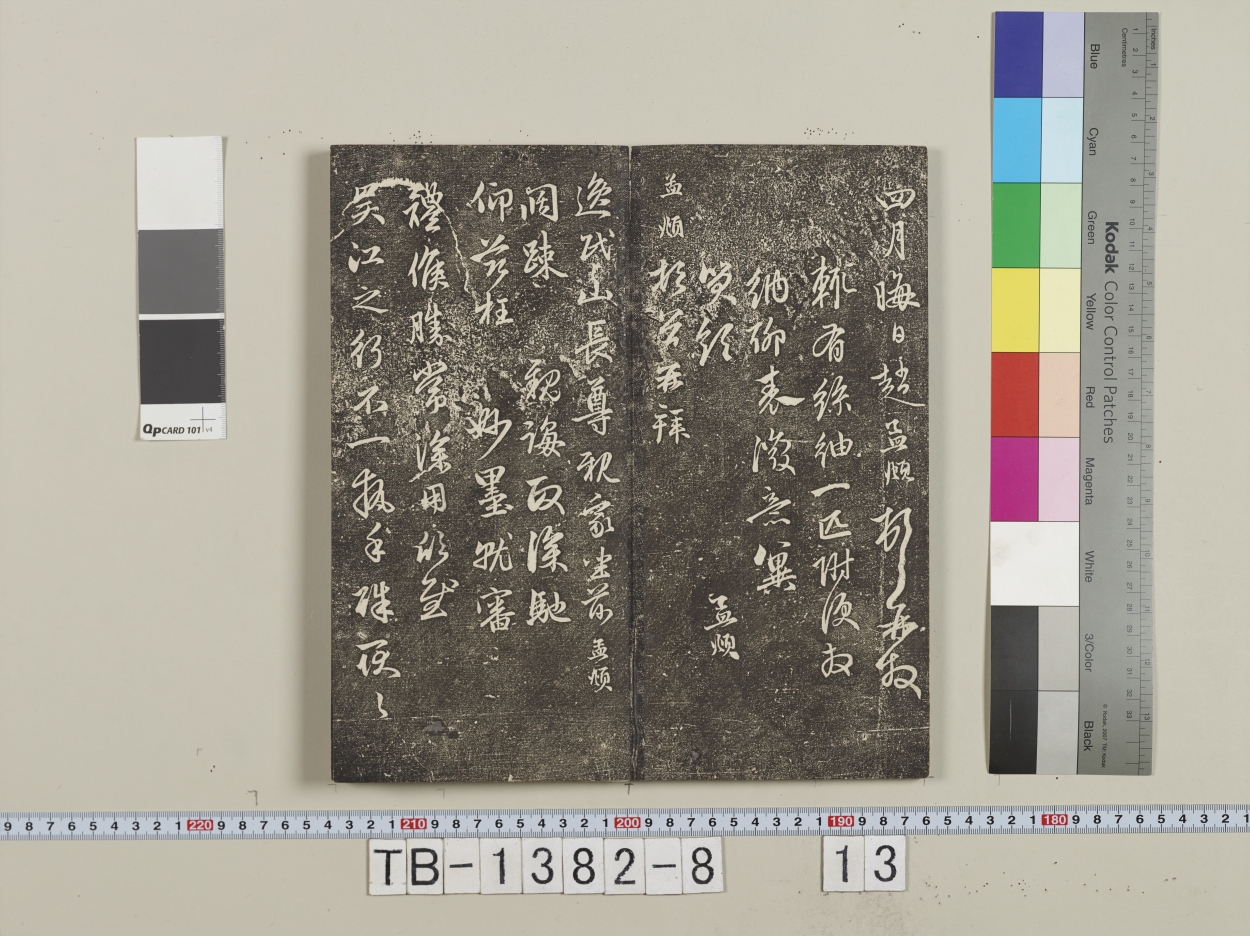 四月晦日趙孟頫頓首再拜
輒有絲紬一匹附便 拜
納聊表微意冀
笑領 孟頫
孟頫頓首再拜
逸民山長尊親家坐前 孟頫
闊疎 親誨取深馳
仰茲枉 妙墨就審
禮候勝常深用欣慰
吳江之行不一執手殊怏々
Blue
Cyan
Green
Yellow
Red
Magenta
White
3/Color
Black
Kodak Color Control Patches
Inches
Centimetres
© Kodak, 2007 TM: Kodak
QPCARD 101 v4
220 210 200 190 180
TB-1382-8
13